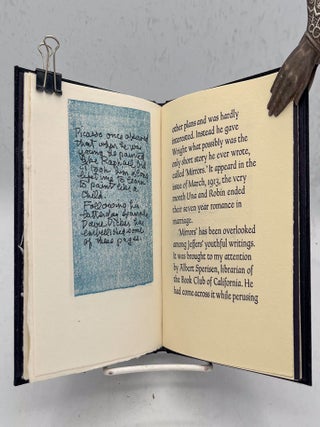 Picasso once observed
that when he was
young he painted
like Raphael, he
took him a long
time to learn
to paint like a
child.
Following his
David
embellished some
of these pages.
other plans and was hardly
interested. Instead he gave
Wright what possibly was the
only short story he ever wrote,
called ‘Mirrors.’ It appeared in the
issue of March, 1913, the very
month Una and Robin ended
their seven year romance in
marriage.
‘Mirrors’ has been overlooked
among Jeffers’ youthful writings.
It was brought to my attention
by Albert Sperisen, librarian of
the Book Club of California. He
had come across it while perusing